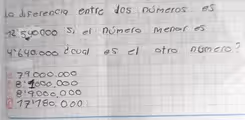 La diferencia entre dos números es
12'540000 si el número menor es
4'640.000 ¿cual es el otro número?
79000.000
8'1000.000
8'9000.000
17'180.000